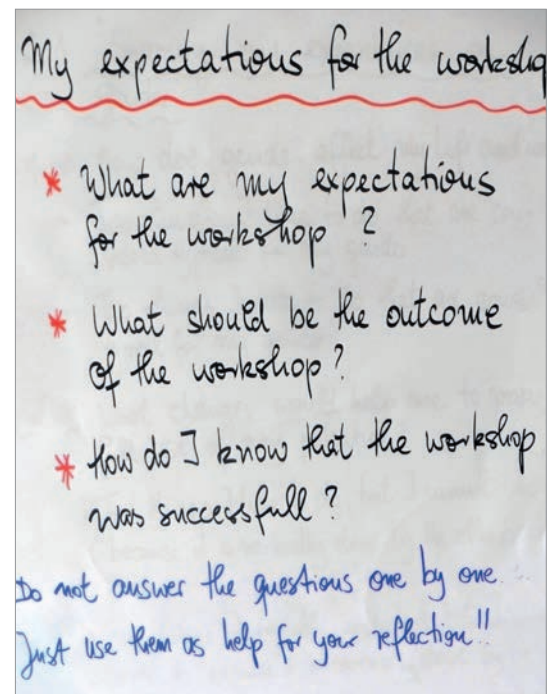 My expectations for the worksho
* What are my expectations
for the workshop ?
* What should be the outcome
of the workshop?
* How do I know that the workshop
was successfull ?
Do not answer the questions one by one...
Just use them as help for your reflection!!